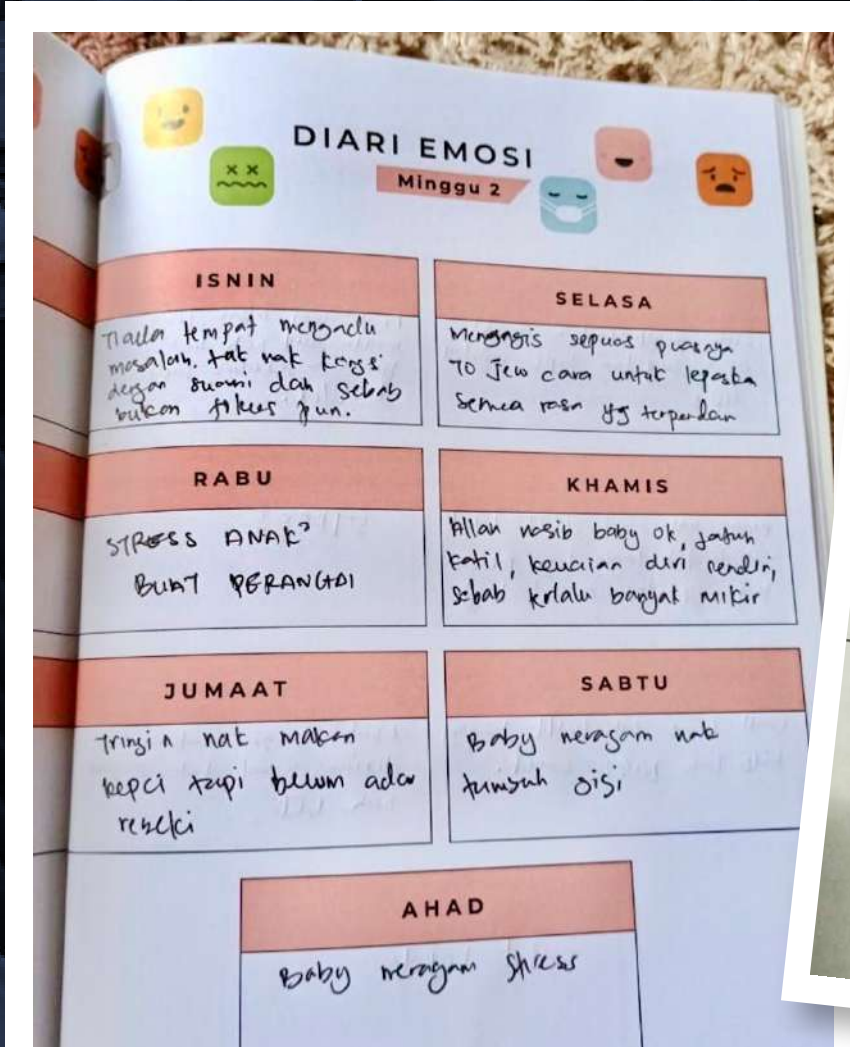 DIARI EMOSI
Minggu 2
ISNIN
Tiada tempat mengadu
masalah. tak nak kongsi
dengan suami dah sebab
bukan fokus pun.
SELASA
Menangis sepuas puasnya
jew cara untuk lepaska
semua rasa yg terpendam
RABU
STRESS ANAK²
BUAT PERANGAI
KHAMIS
Allah nasib baby ok, jatuh
katil, kecuaian diri sendiri,
sebab terlalu banyak mikir
JUMAAT
Tringin nak makan
kepci tapi belum ada
rezeki
SABTU
Baby meragam nak
tumbuh gigi
AHAD
Baby meragam stress